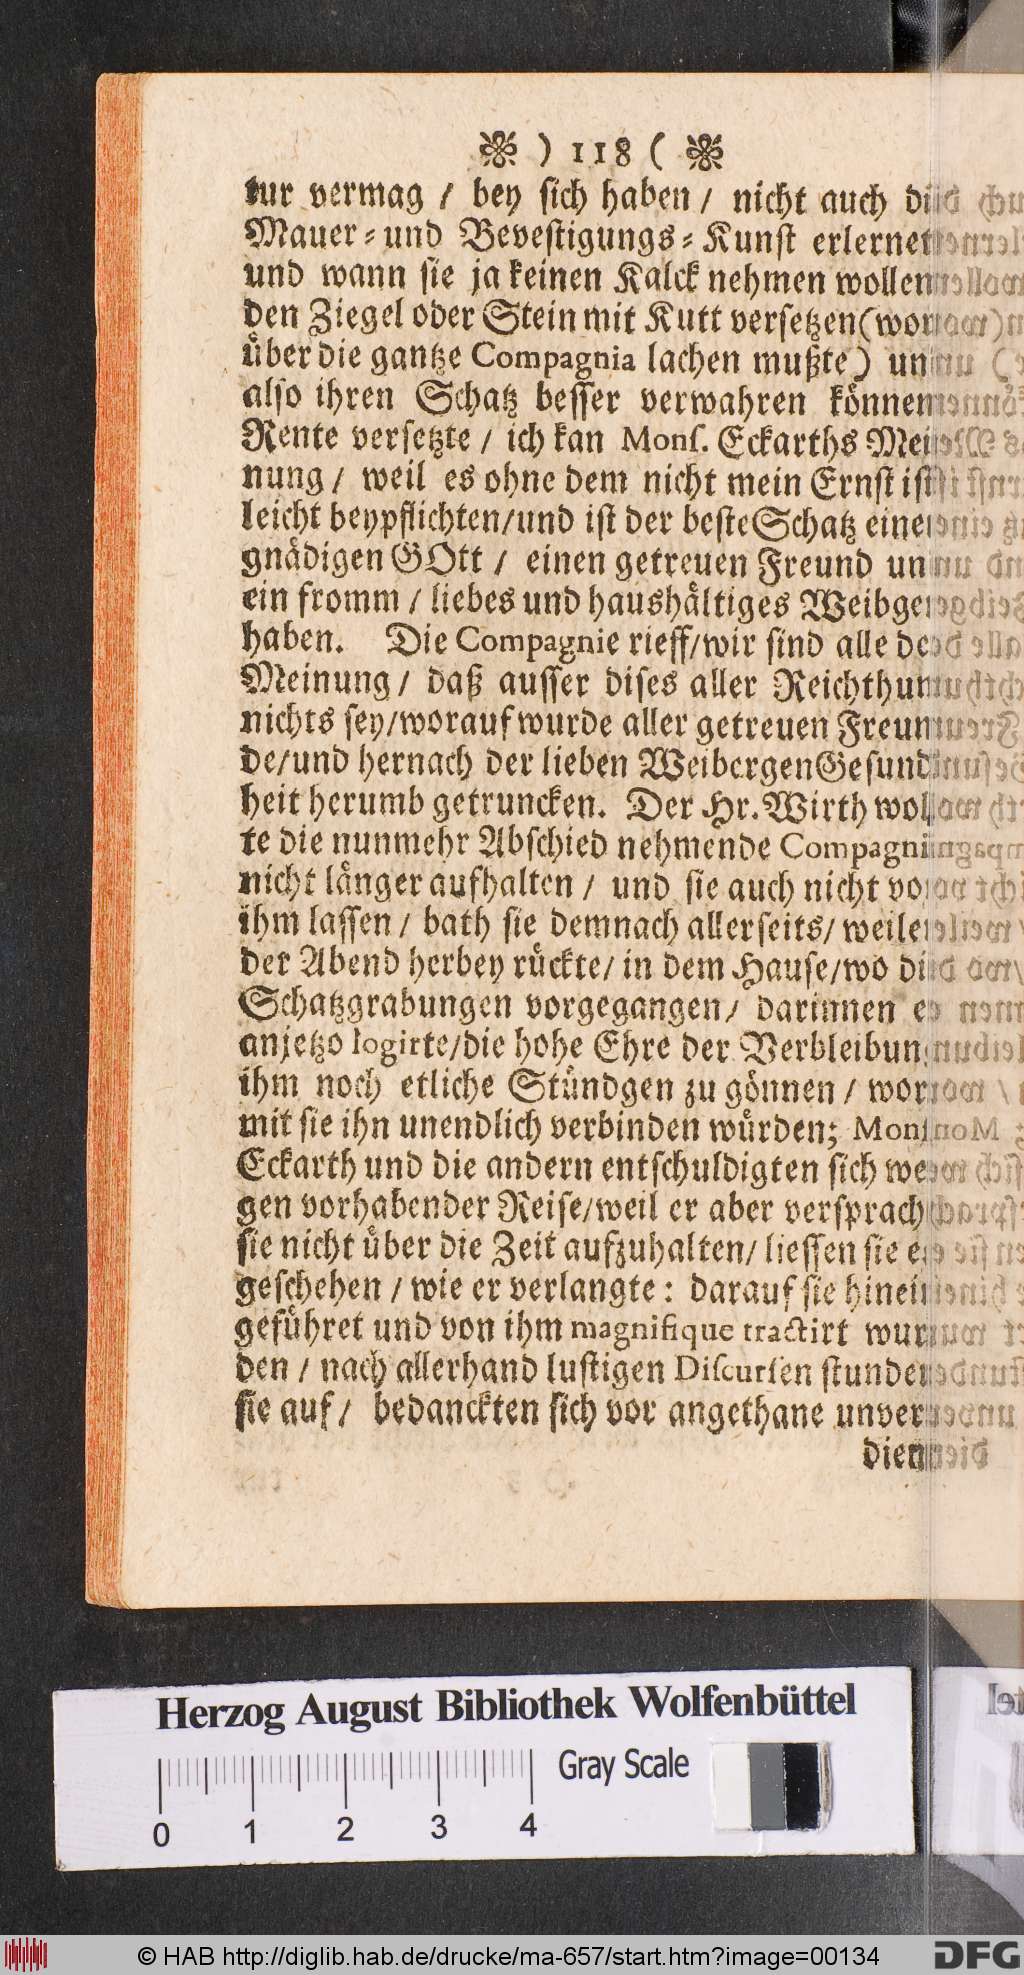 ) 118 (
tur vermag / bey sich haben / nicht auch die
Mauer- und Bevestigungs-Kunst erlernet
und wann sie ja keinen Kalck nehmen wollen
den Ziegel oder Stein mit Kutt versetzen (wor-
über die gantze Compagnia lachen mußte) und
also ihren Schatz besser verwahren können
Rente versetzte / ich kan Mons. Eckarths Mei-
nung / weil es ohne dem nicht mein Ernst ist
leicht beypflichten / und ist der beste Schatz einen
gnädigen GOtt / einen getreuen Freund und
ein fromm / liebes und haushältiges Weibgen
haben. Die Compagnie rieff / wir sind alle der
Meinung / daß ausser dises aller Reichthum
nichts sey / worauf wurde aller getreuen Freun-
de / und hernach der lieben Weibergen Gesund-
heit herumb getruncken. Der Hr. Wirth woll-
te die nunmehr Abschied nehmende Compagni
nicht länger aufhalten / und sie auch nicht von
ihm lassen / bath sie demnach allerseits / weilen
der Abend herbey rückte / in dem Hause / wo die
Schatzgrabungen vorgegangen / darinnen er
anjetzo logirte / die hohe Ehre der Verbleibung
ihm noch etliche Stündgen zu gönnen / wor-
mit sie ihn unendlich verbinden würden; Mons.
Eckarth und die andern entschuldigten sich we-
gen vorhabender Reise / weil er aber versprach
sie nicht über die Zeit aufzuhalten / liessen sie es
geschehen / wie er verlangte: darauf sie hinein
geführet und von ihm magnifique tractirt wur-
den / nach allerhand lustigen Discursen stunden
sie auf / bedanckten sich vor angethane unver-
dien-
Herzog August Bibliothek Wolfenbüttel
Gray Scale
0 1 2 3 4
© HAB http://diglib.hab.de/drucke/ma-657/start.htm?image=00134
DFG